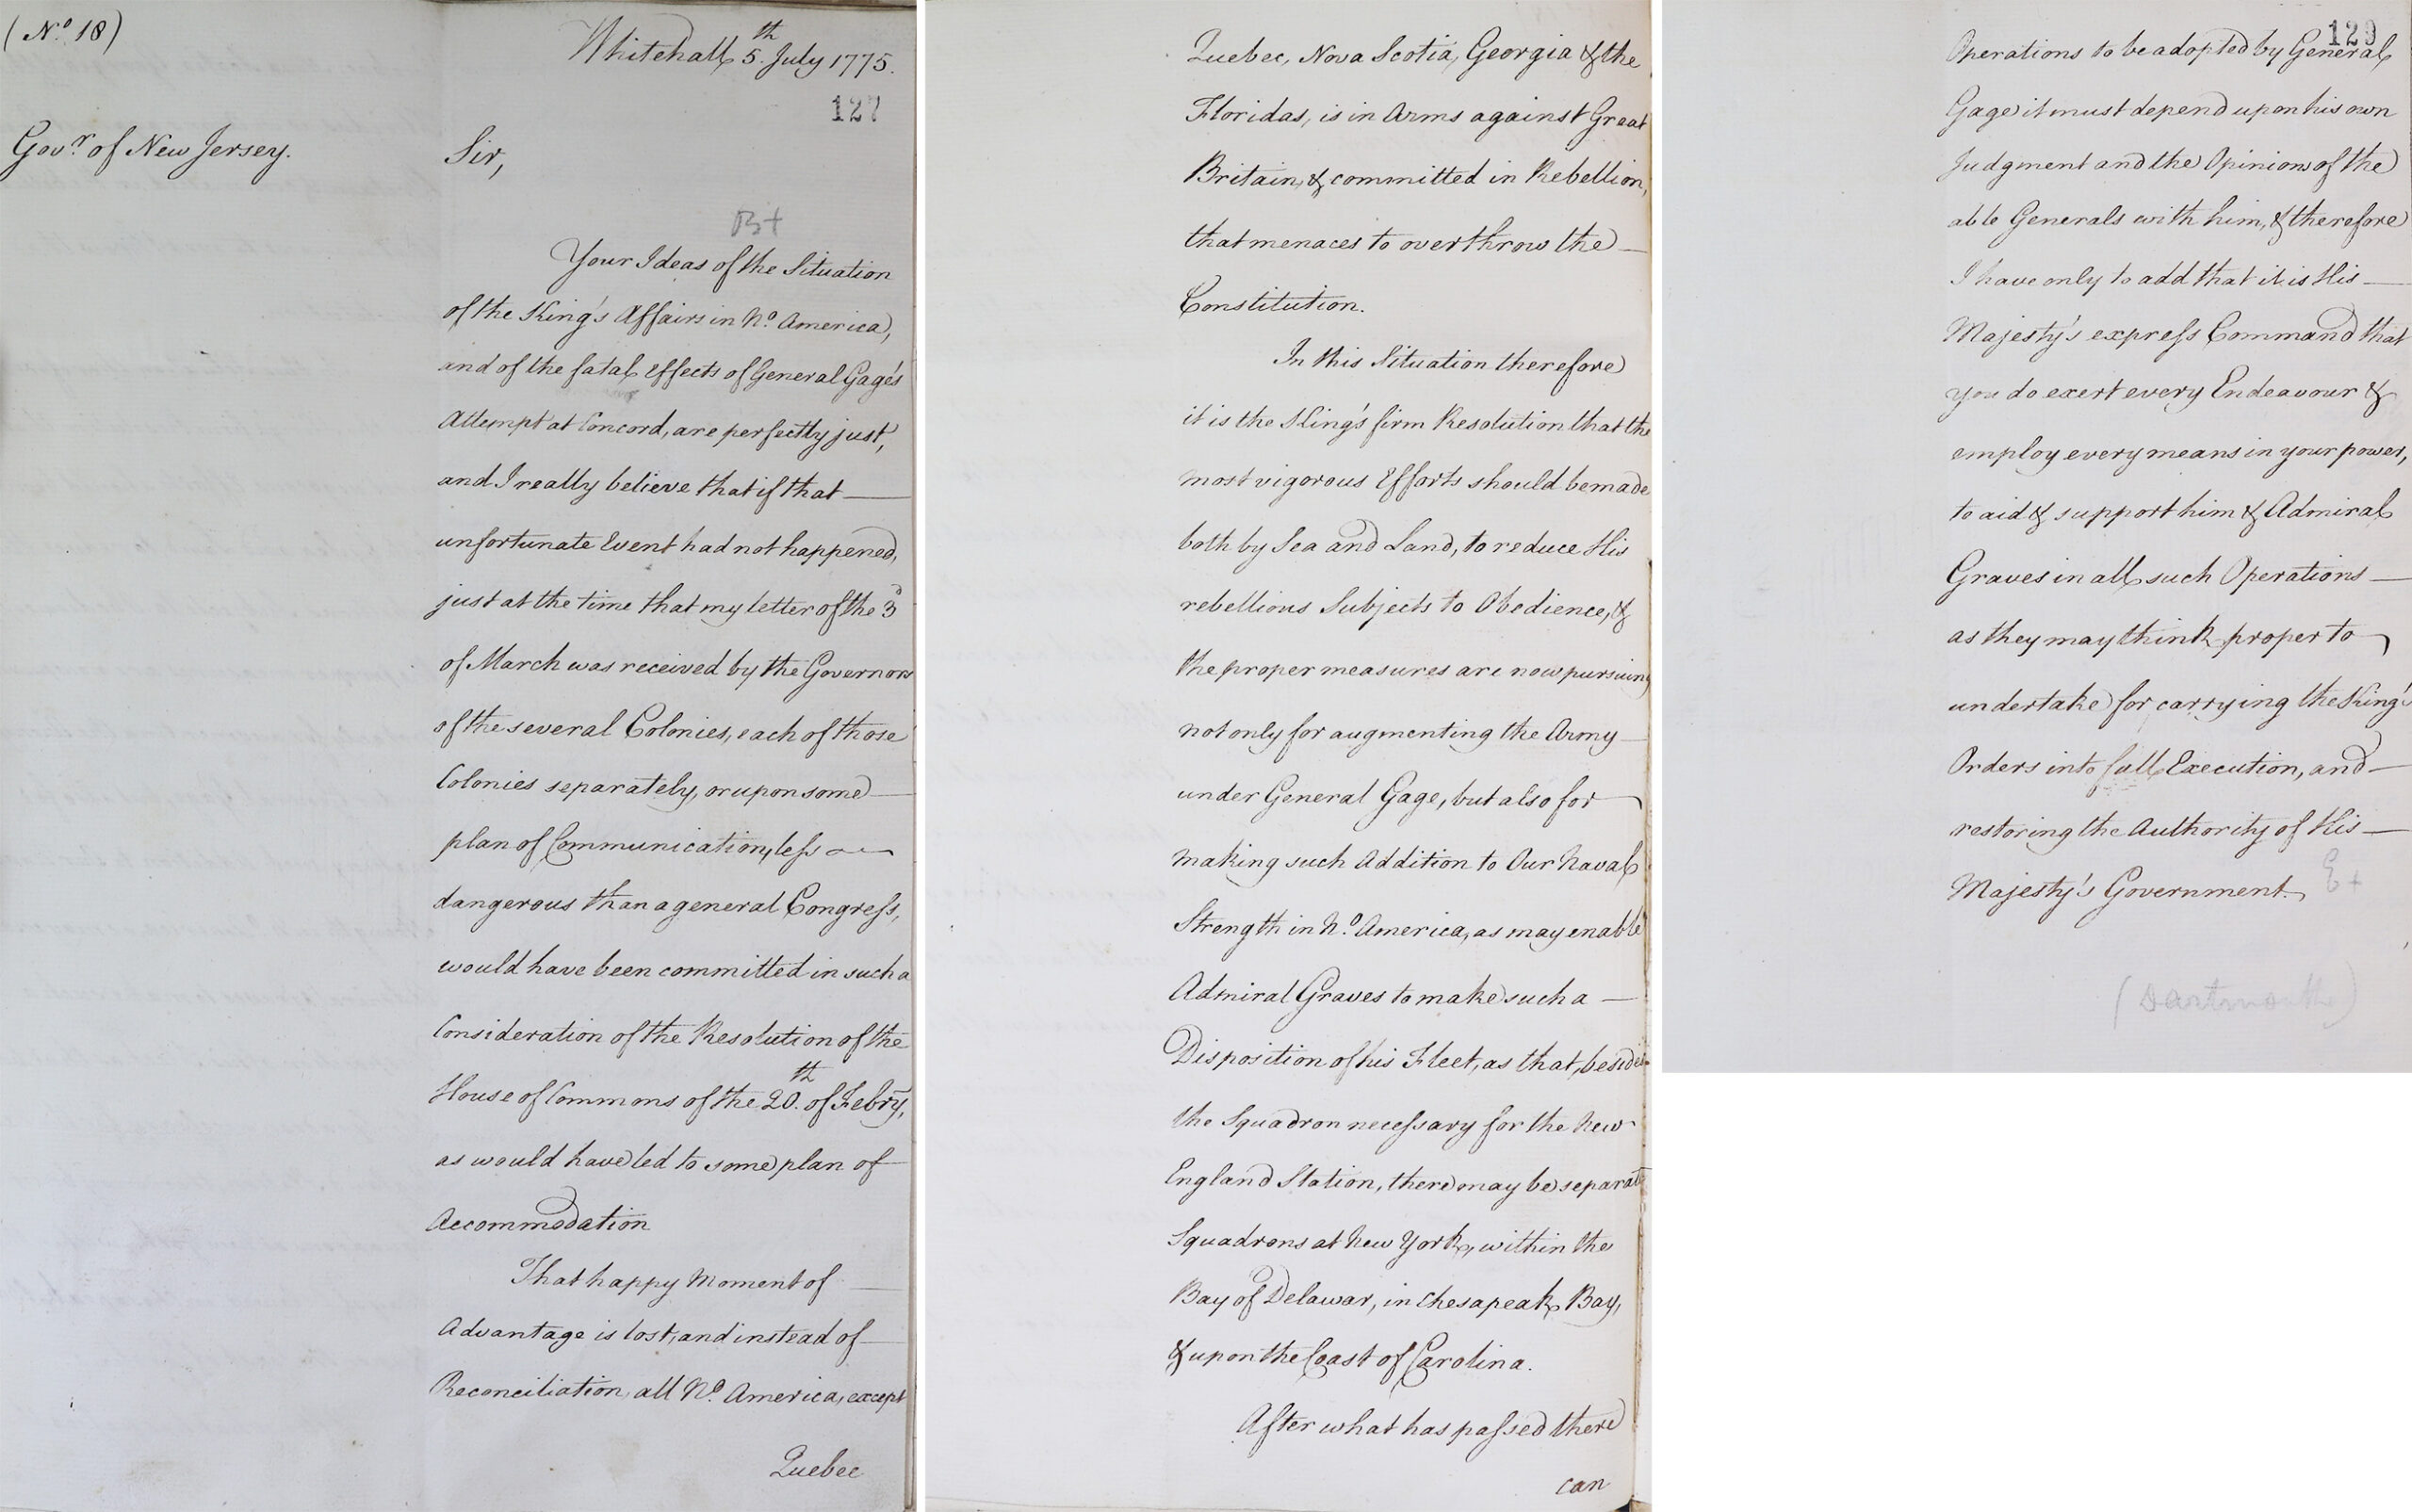 (No. 18)
Whitehall 5.th July 1775.
127
Govr. of New Jersey.
Sir,
B+
Your Ideas of the Situation
of the King's Affairs in No. America,
and of the fatal Effects of General Gage's
Attempt at Concord, are perfectly just,
and I really believe that if that
unfortunate Event had not happened,
just at the time that my letter of the 3d
of March was received by the Governors
of the several Colonies, each of those
Colonies separately, or upon some
plan of Communication, less
dangerous than a general Congress,
would have been committed in such a
Consideration of the Resolution of the
House of Commons of the 20.th of Febry,
as would have led to some plan of
Accommodation
That happy Moment of
Advantage is lost, and instead of
Reconciliation, all No. America, except
Quebec
Quebec, Nova Scotia, Georgia & the
Floridas, is in Arms against Great
Britain, & committed in Rebellion,
that menaces to overthrow the
Constitution.
In this Situation therefore
it is the King's firm Resolution that the
most vigorous Efforts should be made
both by Sea and Land, to reduce His
rebellious Subjects to Obedience, &
the proper measures are now pursuing
not only for augmenting the Army
under General Gage, but also for
making such Addition to Our Naval
Strength in No. America, as may enable
Admiral Graves to make such a
Disposition of his Fleet, as that, besides
the Squadron necessary for the New
England Station, there may be separate
Squadrons at New York, within the
Bay of Delawar, in Chesapeak Bay,
& upon the Coast of Carolina.
After what has passed there
can
129
Operations to be adopted by General
Gage it must depend upon his own
Judgment and the Opinions of the
able Generals with him, & therefore
I have only to add that it is His
Majesty's express Command that
you do exert every Endeavour &
employ every means in your power,
to aid & support him & Admiral
Graves in all such Operations
as they may think proper to
undertake for carrying the King's
Orders into full Execution, and
restoring the Authority of His
Majesty's Government.
E+
(Dartmouth)